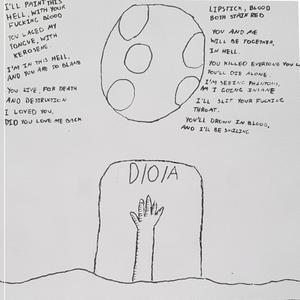 I'LL PAINT THIS
HELL, WITH YOUR
FUCKING BLOOD
YOU LACED MY
TONGUE, WITH
KEROSENE
I'M IN THIS HELL,
AND YOU ARE TO BLAME
YOU LIVE, FOR DEATH
AND DESTRUCTION
I LOVED YOU,
DID YOU LOVE ME BACK
LIPSTICK, BLOOD
BOTH STAIN RED
YOU AND ME
WILL BE TOGETHER,
IN HELL.
YOU KILLED EVERYONE YOU
YOU'LL DIE ALONE.
I'M SEEING PHANTOMS,
AM I GOING INSANE
I'LL SLIT YOUR FUCKING
THROAT.
YOU'LL DROWN IN BLOOD,
AND I'LL BE SMILING
D/O/A